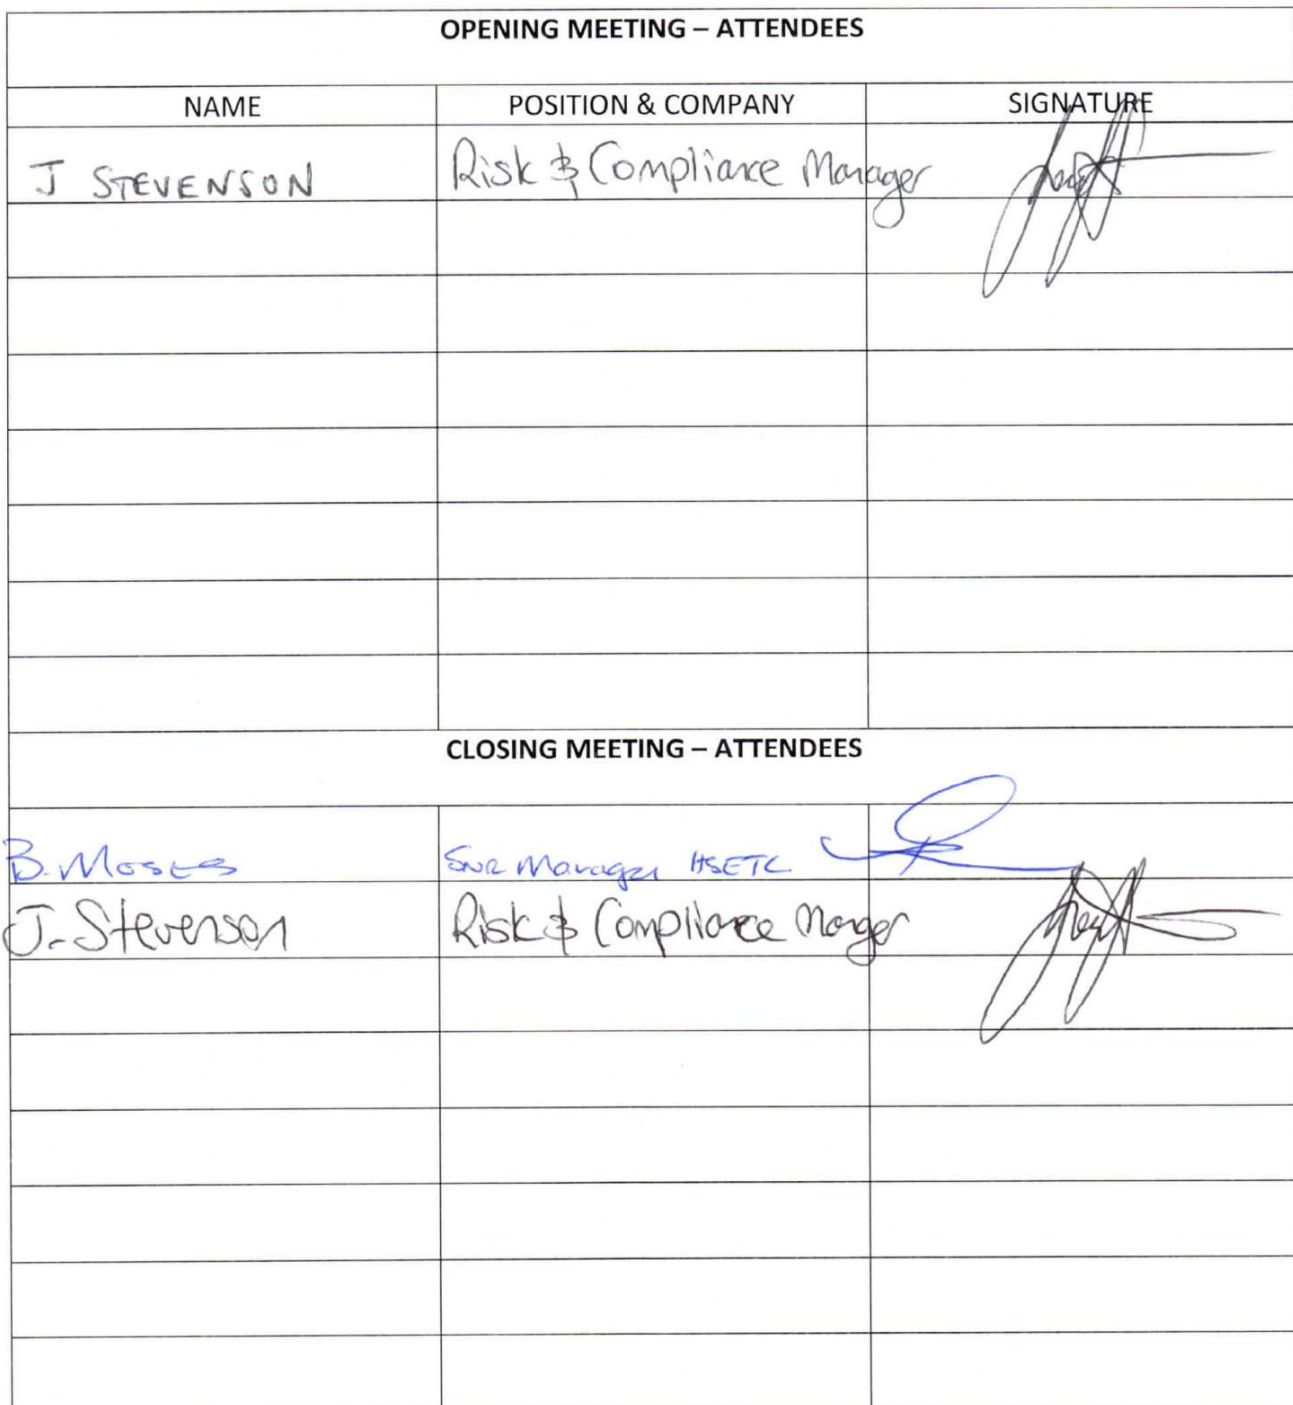 OPENING MEETING – ATTENDEES
NAME POSITION & COMPANY SIGNATURE
J STEVENSON Risk & Compliance Manager
CLOSING MEETING – ATTENDEES
B. MOSES SNR Manager HSETC
J. Stevenson Risk & Compliance Manger